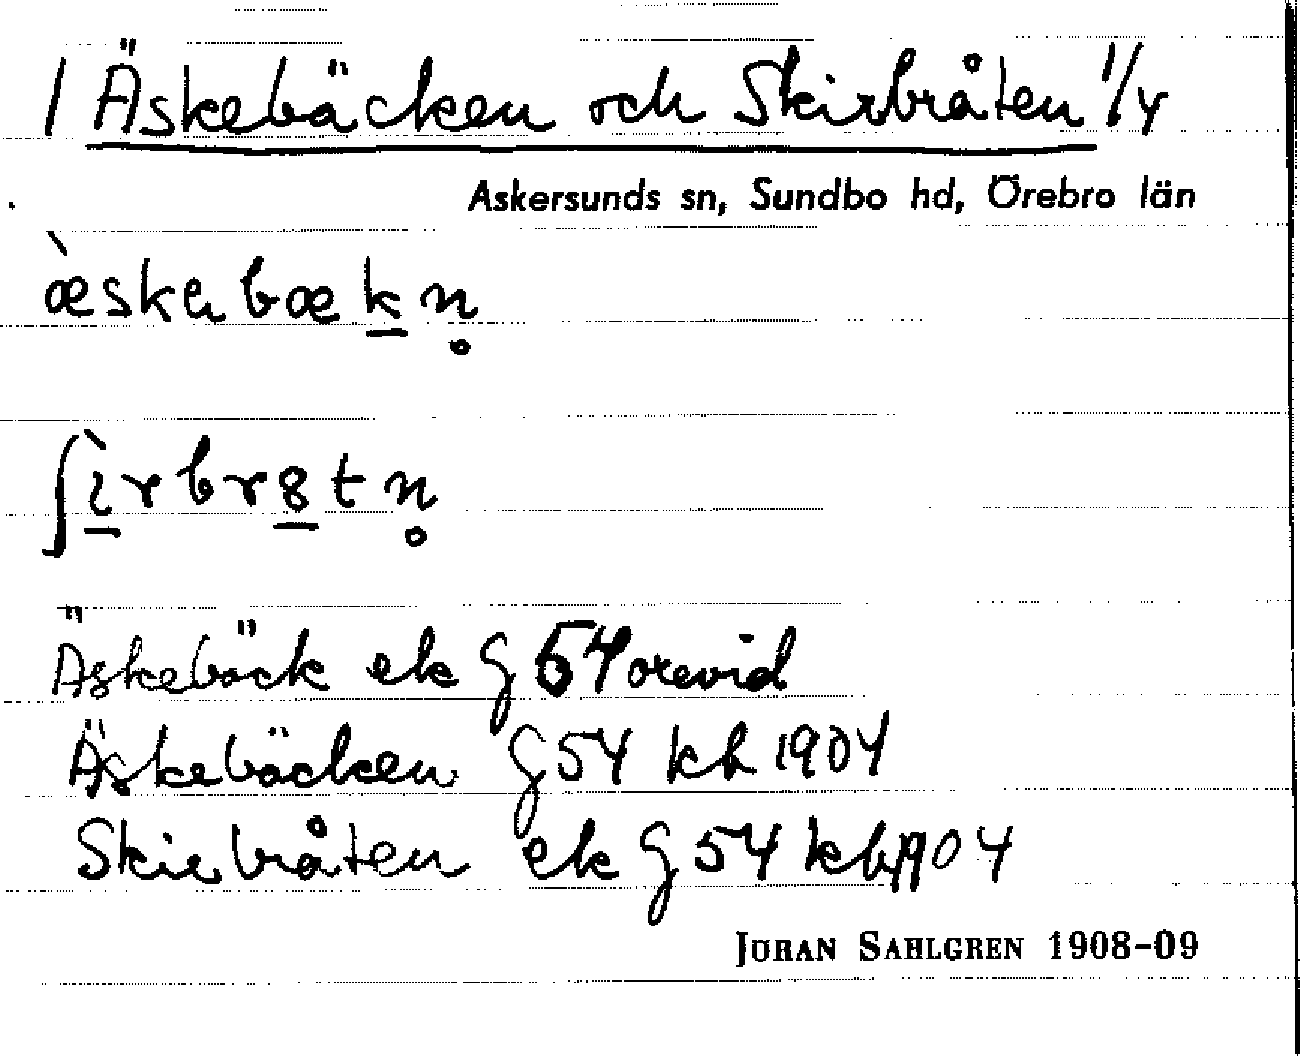 / Äskebäcken och Skirbråten 1/4
Askersunds sn, Sundbo hd, Örebro län
æ̀skəbæk̠n̥
ʃɪ̠̀rbr8̠tn̥
Äskebäck ek G 54 orevid
Äskebäcken G 54 kb 1904
Skirbråten ek G 54 kb 1904
JÖRAN SAHLGREN 1908-09